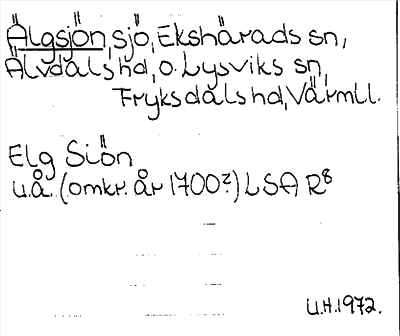 Älgsjön, sjö, Ekshärads sn,
Älvdals hd, o. Lysviks sn,
Fryksdals hd, Värmll.
Elg Siön
u.å. (omkr. år 1700?) LSA R8
U.H. 1972.